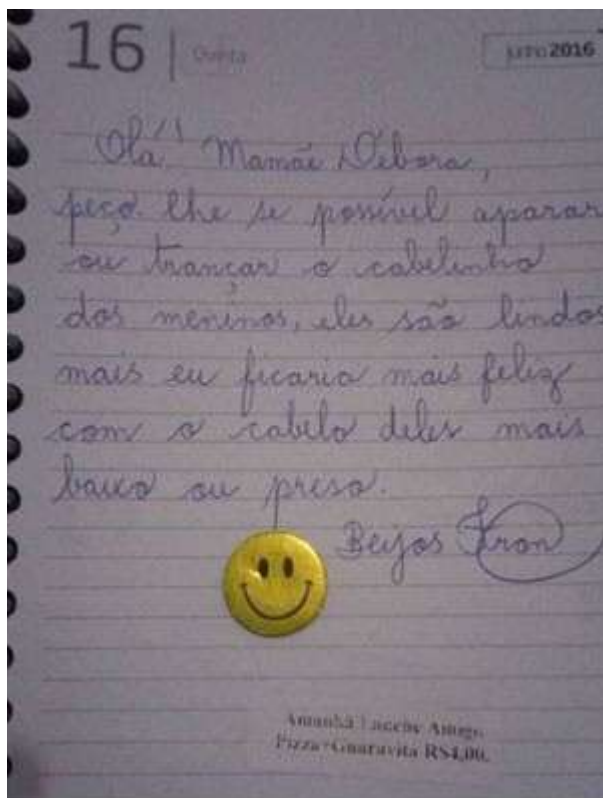 16 Quinta junho 2016
Olá!! Mamãe Débora,
peço lhe se possível aparar
ou trançar o cabelinho
dos meninos, eles são lindos
mais eu ficaria mais feliz
com o cabelo deles mais
baixo ou preso.
Beijos
Amanhã Lanche Amigo.
Pizza+Guaravita R$4,00.